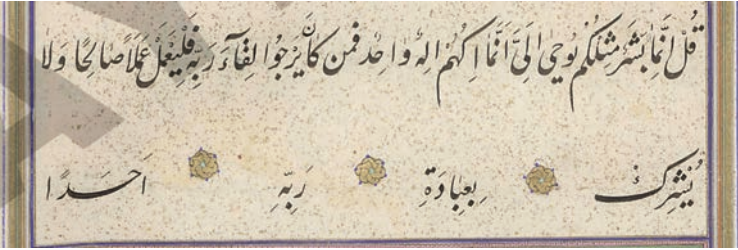 قُلْ اِنَّمَا بَشَرٌ مِثْلُكُمْ يُوحٰى اِلَىَّ اَنَّمَا اِلهٌ وَاحِد فَمن كَانَ يَرْجُوا لِقَآءَ رَبِّهِ فَلْيَعْمَلْ عَمَلاً صَالِحًا وَلا
يُشْرِكْ بِعِبَادَةِ رَبِّهِ اَحَدًا